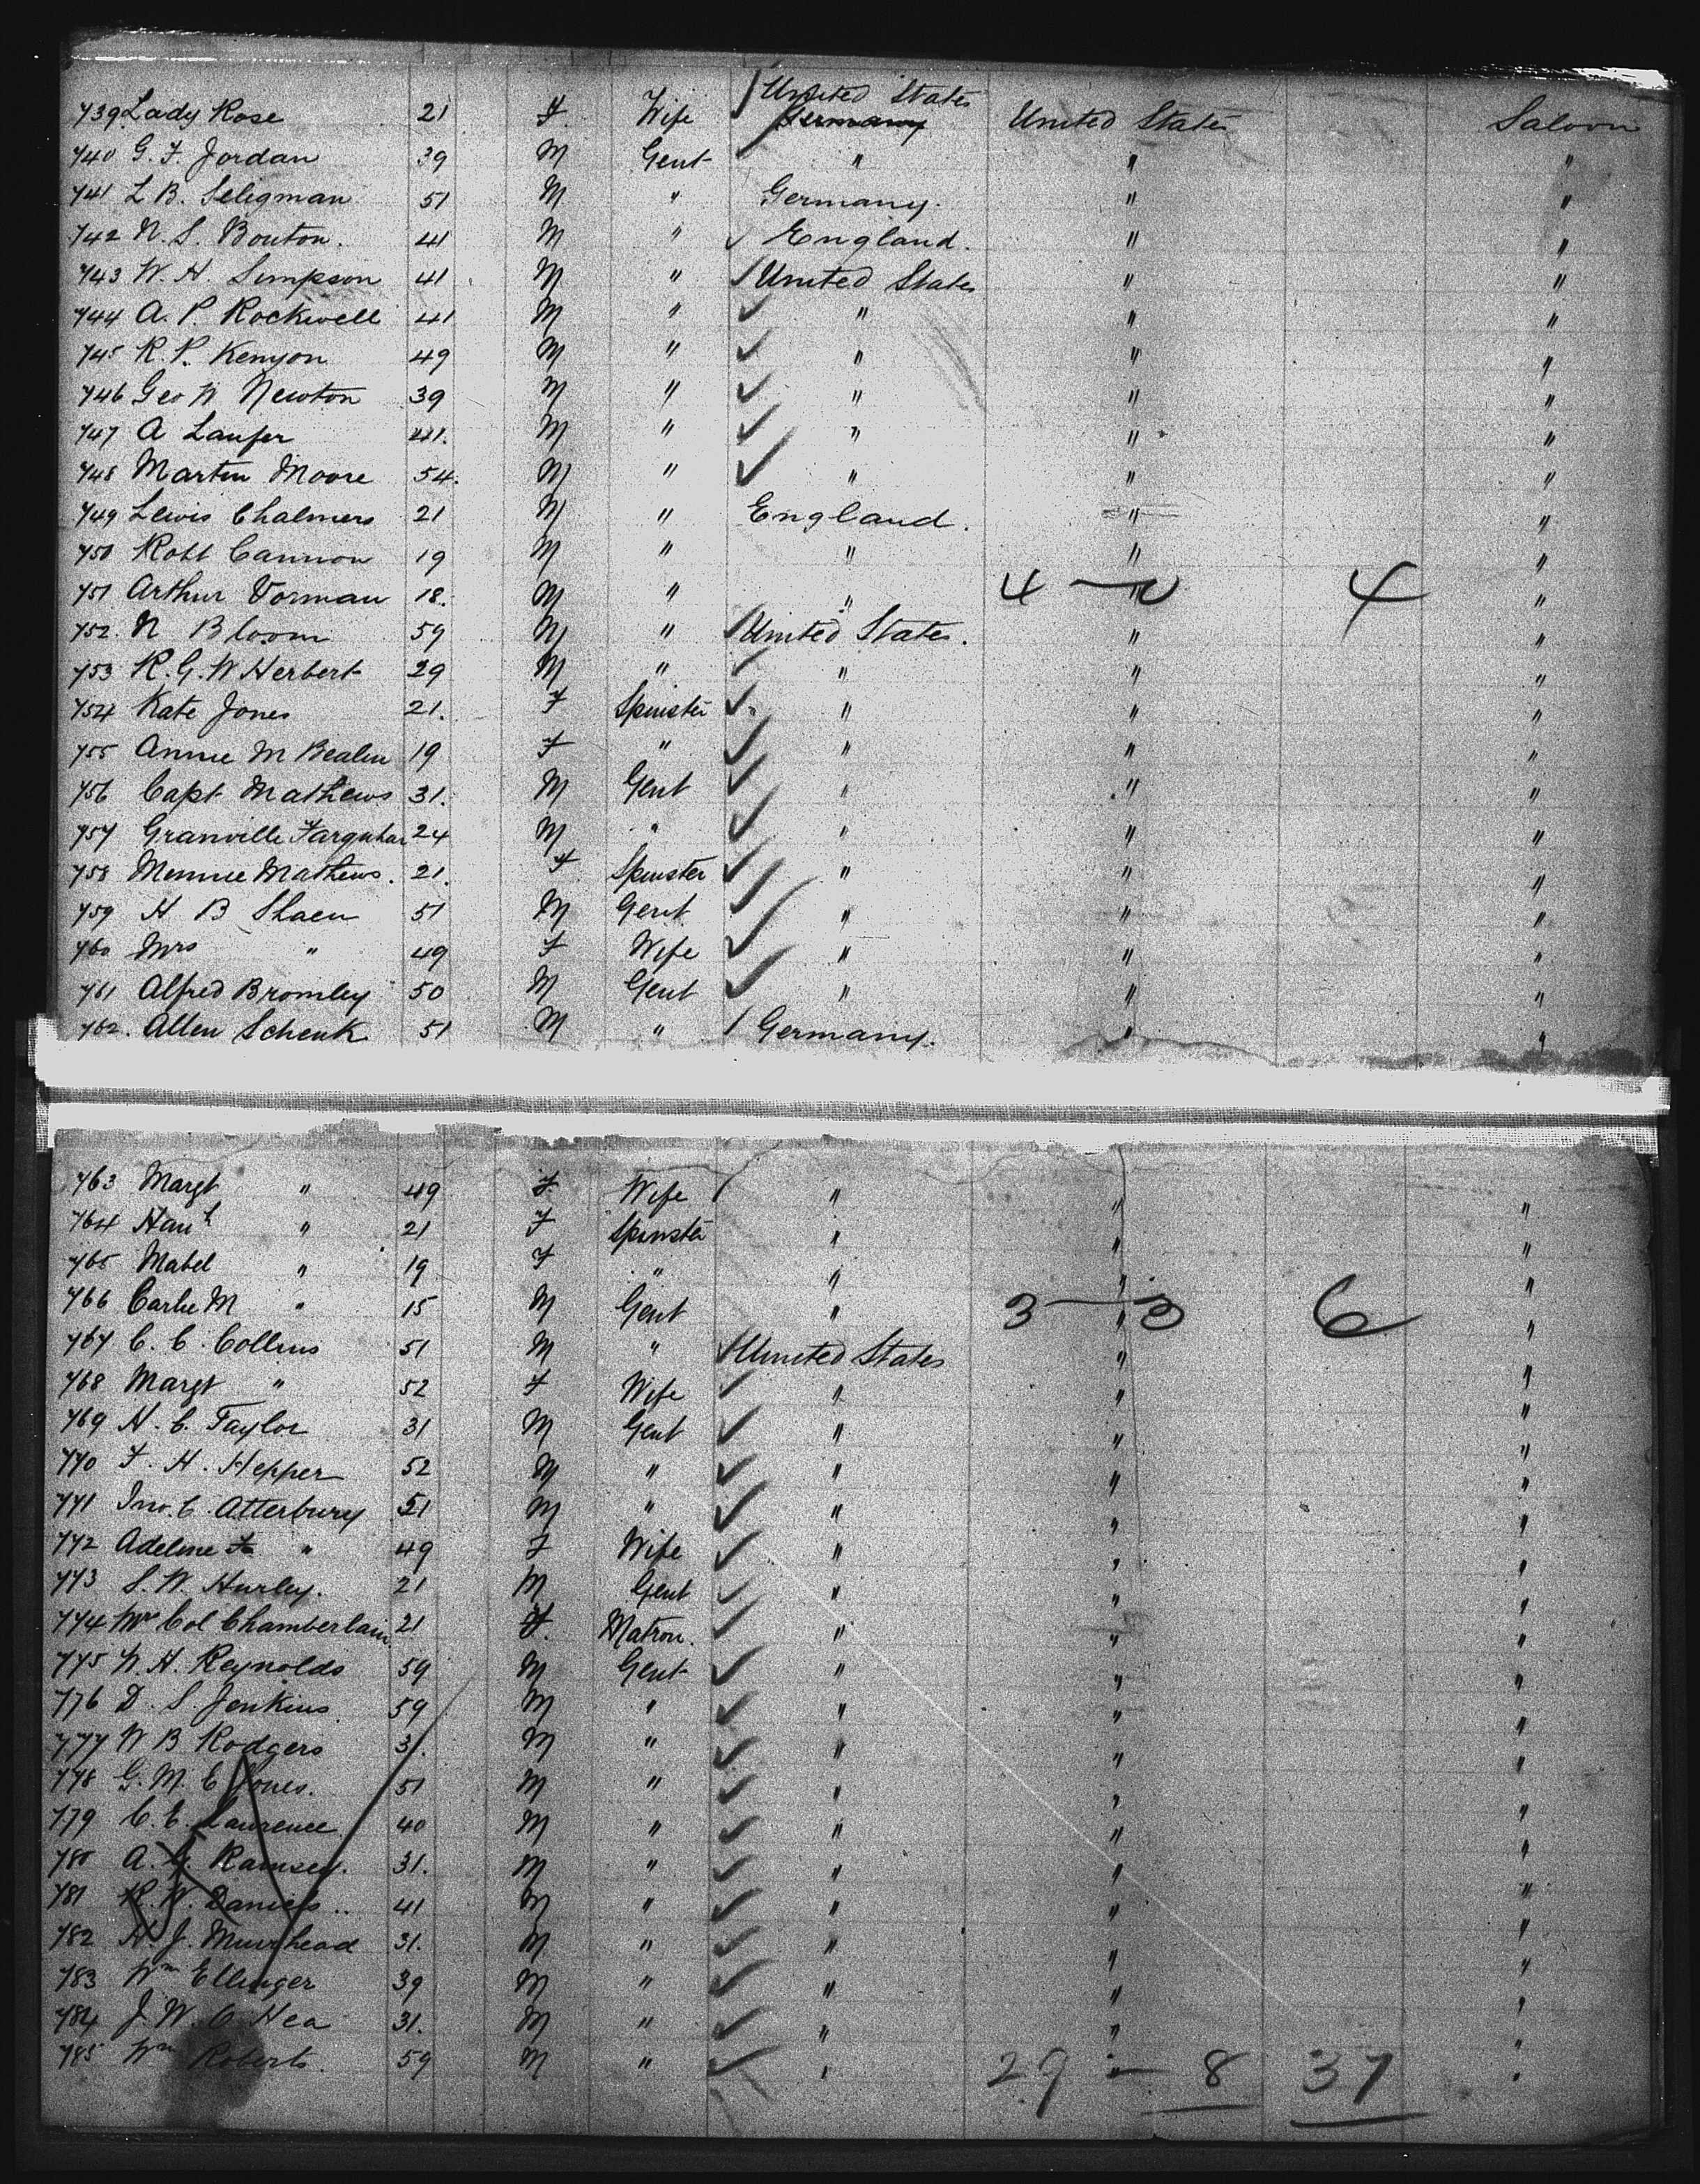 739 Lady Rose 21 F Wife United States Germany United States Saloon
740 G. F. Jordan 39 M Gent " " "
741 L B. Seligman 51 M " Germany. " "
742 N. S. Bouton. 41 M " England. " "
743 W. H. Simpson 41 M " United States " "
744 A. P. Rockwell 41 M " " " "
745 R. P. Kenyon 49 M " " " "
746 Geo W Newton 39 M " " " "
747 A Laufer 41. M " " " "
748 Martin Moore 54. M " " " "
749 Lewis Chalmers 21 M " England. " "
750 Robt Cannon 19 M " " " "
751 Arthur Vorman 18. M " " 4 — " 4 "
752. N Bloom 59 M " United States. " "
753 R. G. W Herbert 29 M " " " "
754 Kate Jones 21. F Spinster " " "
755 Annie M Bealin 19 F " " " "
756 Capt Mathews 31. M Gent " " "
757 Granville Farquhar 24 M " " " "
758 Minnie Mathews. 21. F Spinster " " "
759 H B Shaen 51 M Gent " " "
760 Mrs " 49 F Wife " " "
761 Alfred Bromley 50 M Gent " " "
762. Allen Schenk 51 M " Germany. " "
763 Margt " 49 F. Wife " " "
764 Hanh " 21 F Spinster " " "
765 Mabel " 19 F " " " "
766 Carlie M " 15 M Gent " 3 — 3 6 "
767 C. C. Collins 51 M " United States " "
768 Margt " 52 F Wife " " "
769 H. C. Taylor 31 M Gent " " "
770 F. H. Hepper 52 M " " " "
771 Jno. C. Atterbury 51 M " " " "
772 Adeline " 49 F Wife " " "
773 S. W. Hurley. 21 M Gent " " "
774 Mrs Col Chamberlain 21 F. Matron. " " "
775 W. H. Reynolds 59 M Gent " " "
776 D. S. Jenkins. 59 M " " " "
777 W B Rodgers 31. M " " " "
778 G. M. C Jones. 51 M " " " "
779 C. E. Laurence 40 M " " " "
780 A. Ramsey. 31. M " " " "
781 R. W. Daniels .. 41 M " " " "
782 H J. Muirhead 31. M " " " "
783 Wm Ellinger 39 M " " " "
784 J. W. O Hea 31. M " " " "
785 Wm Roberts. 59 M " " 29 — 8 37 "